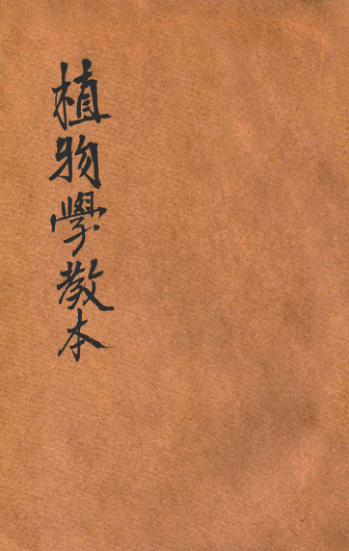 植物學教本